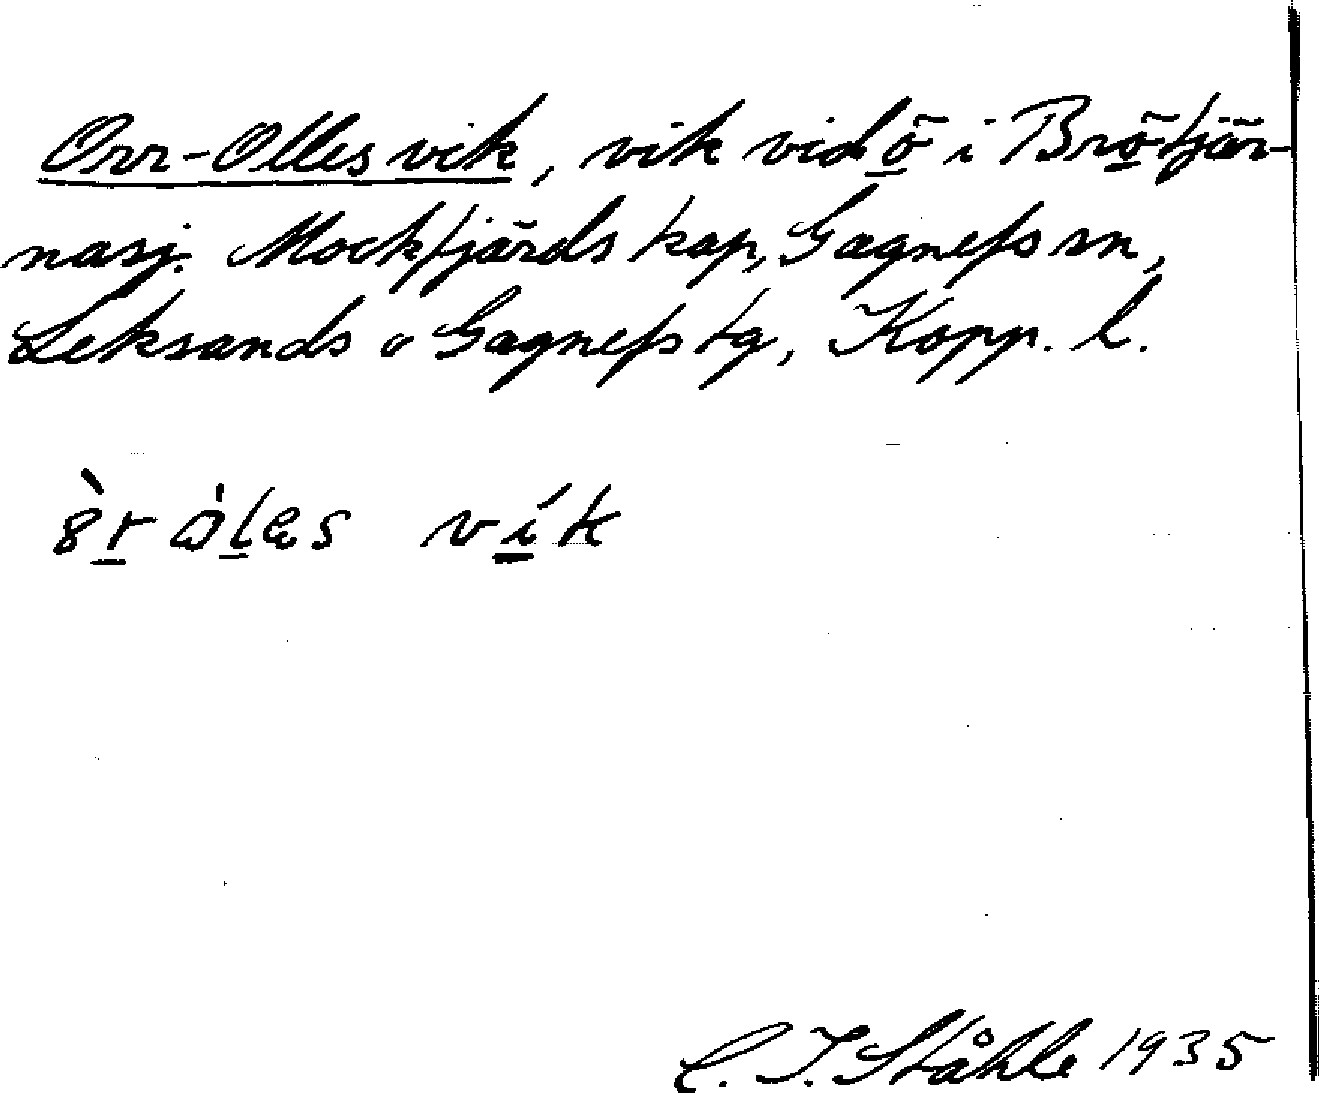 Orr-Olles vik, vik vid ö i Brötjär-
nasj. Mockfjärds kap, Gagnefs sn,
Leksands o Gagnefs tg, Kopp. l.
vik
C. I. Ståhle 1935